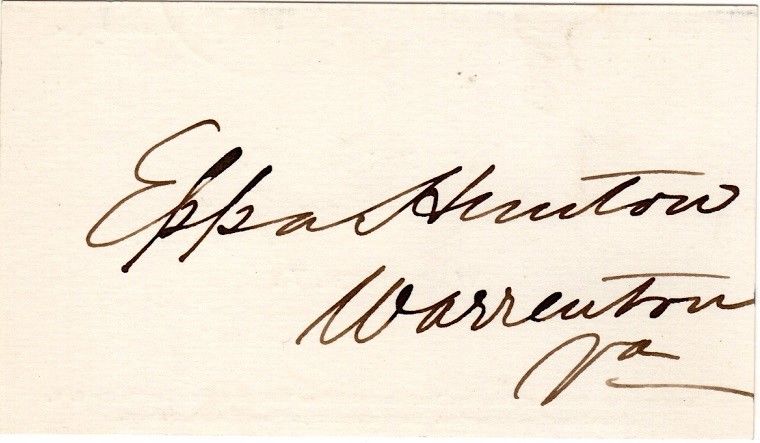 Eppa Hunton
Warrenton
Va